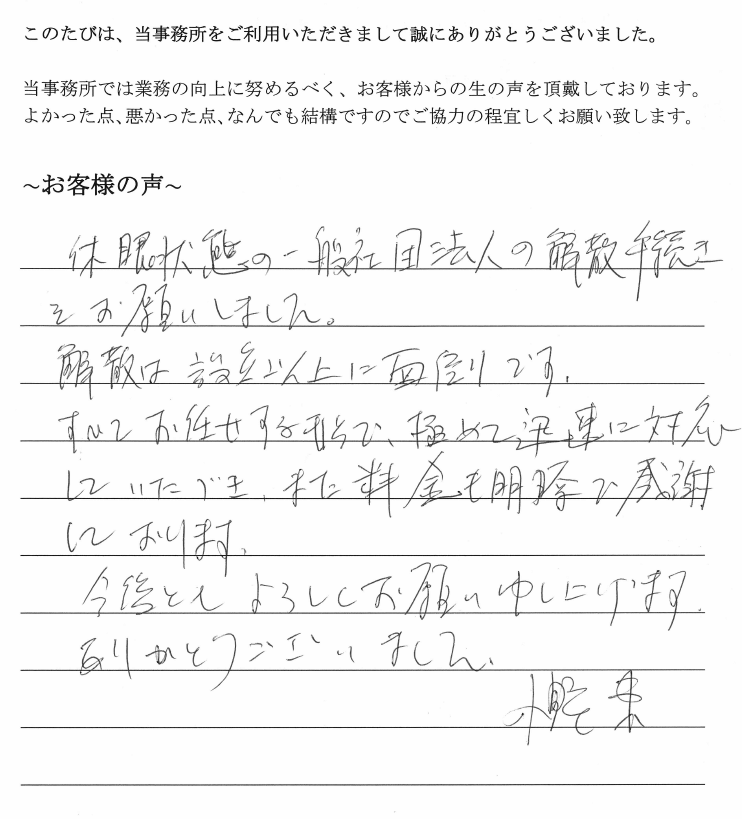 このたびは、当事務所をご利用いただきまして誠にありがとうございました。
当事務所では業務の向上に努めるべく、お客様からの生の声を頂戴しております。
よかった点、悪かった点、なんでも結構ですのでご協力の程宜しくお願い致します。
~お客様の声~
休眠状態の一般社団法人の解散手続き
をお願いしました。
解散は設立以上に面倒です。
すべてお任せする形で、極めて迅速に対応
していただき、また料金も明瞭で感謝
しております。
今後ともよろしくお願い申し上げます。
ありがとうございました。